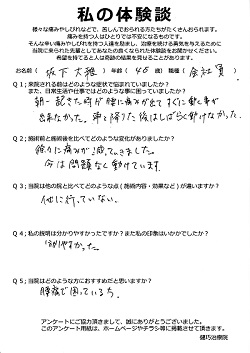 私の体験談
様々な痛みやしびれなどで、苦しんでおられる方たちがたくさんおられます。
痛みを持つ人はひとりでは不安になるものです。
そんな辛い痛みやしびれを持つ人達を励まし、治療を続ける勇気を与えるために
当院に来られた感想としてあなたの良くなられた体験談をお聞かせください。
希望を持てる人とは奇跡の結果を見せることがあります。
お名前( 坂下 大雅 )年齢( 45 歳)職種( 会社員 )
Q1;来院される前はどのような症状で悩まれていましたか?
また、日常生活や仕事ではどのような事に困っていましたか?
朝一起きた時が腰に痛みが出てすぐに動く事が
出来なかった。車を降りた後はしばらく動けなかった。
Q2;施術前と施術後を比べてどのような変化がありましたか?
徐々に痛みが減っていきました。
今は問題なく動けています。
Q3;当院は他の院と比べてどのような点(施術内容・効果など)が違いますか?
他に行っていない。
Q4;私の説明は分かりやすかったですか?また私の印象はいかがでしたか?
分かりやすかった。
Q5;当院はどのような方におすすめだと思いますか?
腰痛で困っている方。
アンケートにご協力頂きまして、誠にありがとうございました。
このアンケート用紙は、ホームページやチラシ等に掲載させて頂きます。
健巧治療院